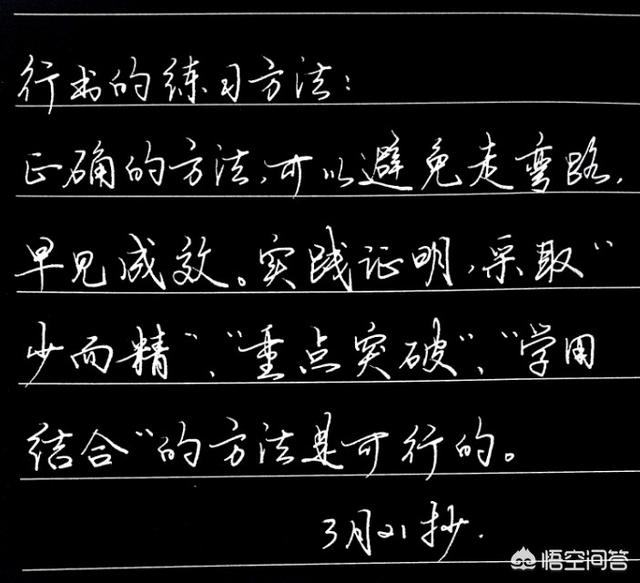 行书的练习方法：
正确的方法，可以避免走弯路，
早见成效。实践证明，采取“
少而精”、“重点突破”、“学用
结合”的方法是可行的。
3月21抄.
悟空问答